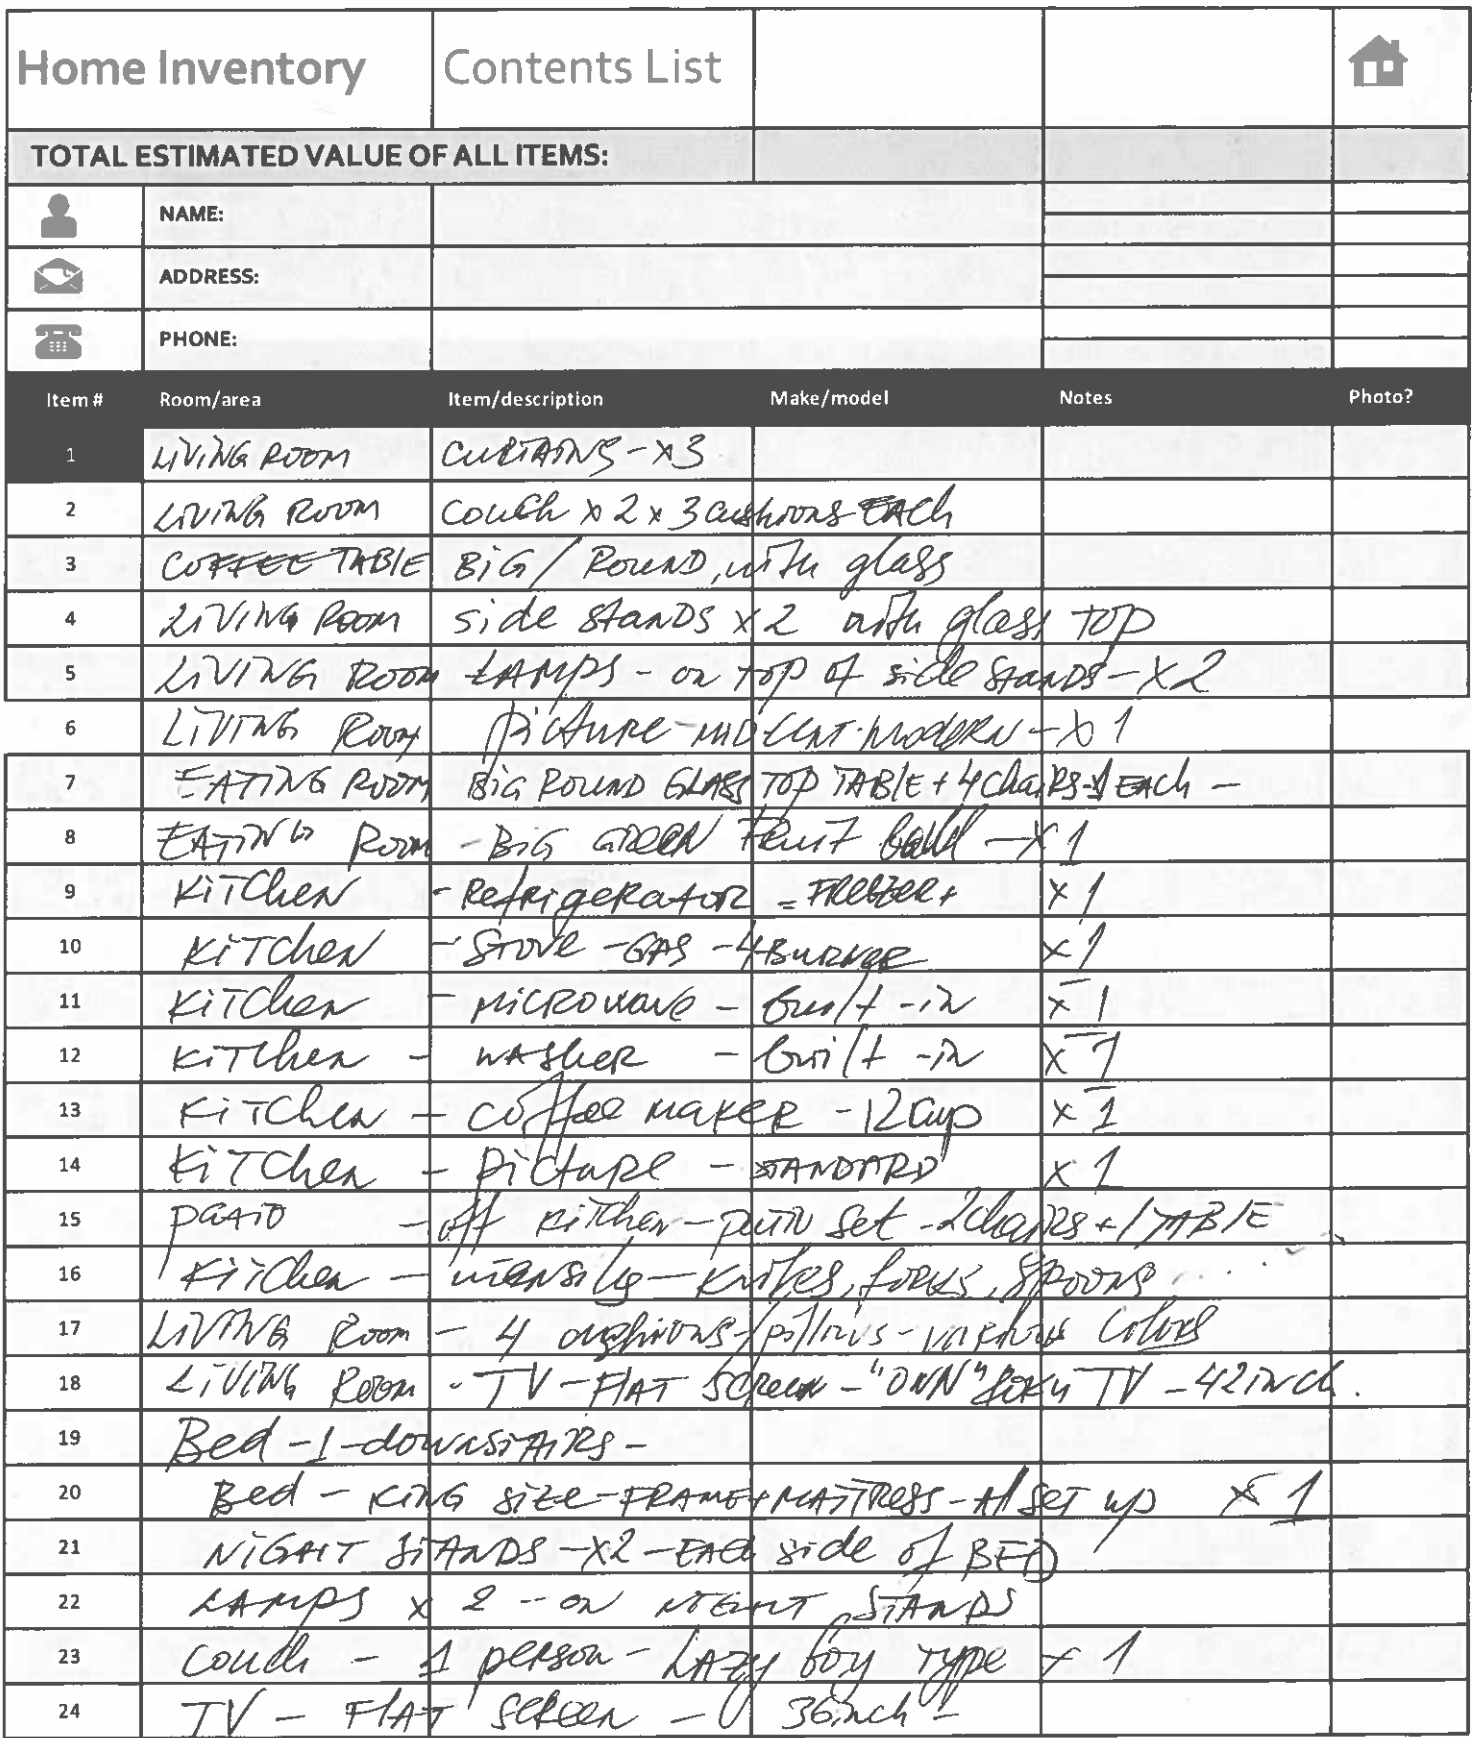 Home Inventory Contents List
TOTAL ESTIMATED VALUE OF ALL ITEMS:
NAME:
ADDRESS:
PHONE:
Item # Room/area Item/description Make/model Notes Photo?
1 LIVING ROOM CURTAINS - x3
2 LIVING ROOM COUCH x 2 x 3 cushions EACH
3 COFFEE TABLE BIG / ROUND, with glass
4 LIVING ROOM side stands x 2 with glass top
5 LIVING ROOM LAMPS - on top of side stands - x2
6 LIVING ROOM picture - modern - x 1
7 EATING ROOM BIG ROUND GLASS TOP TABLE + 4 chairs - 1 EACH -
8 EATING ROOM - BIG GREEN FRUIT - x 1
9 KITCHEN - Refrigerator - FREEZER + x 1
10 KITCHEN - STOVE - GAS - 4 BURNER x 1
11 KITCHEN - MICROWAVE - built-in x 1
12 KITCHEN - WASHER - built-in x 1
13 KITCHEN - coffee maker - 12 cup x 1
14 KITCHEN - picture - STANDARD x 1
15 - off kitchen - set - 2 chairs + 1 TABLE
16 KITCHEN - - knifes, forks, spoons . . .
17 LIVING ROOM - 4 cushions / pillows - various colors
18 LIVING ROOM - TV - FLAT screen - "ONN" ROKU TV - 42 inch.
19 Bed - 1 - downstairs -
20 Bed - KING SIZE - FRAME + MATTRESS - All SET up x 1
21 NIGHT STANDS - x2 - EACH side of BED
22 LAMPS x 2 - on NIGHT STANDS
23 COUCH - 1 person - LAZY boy TYPE x 1
24 TV - FLAT screen - 36 inch -